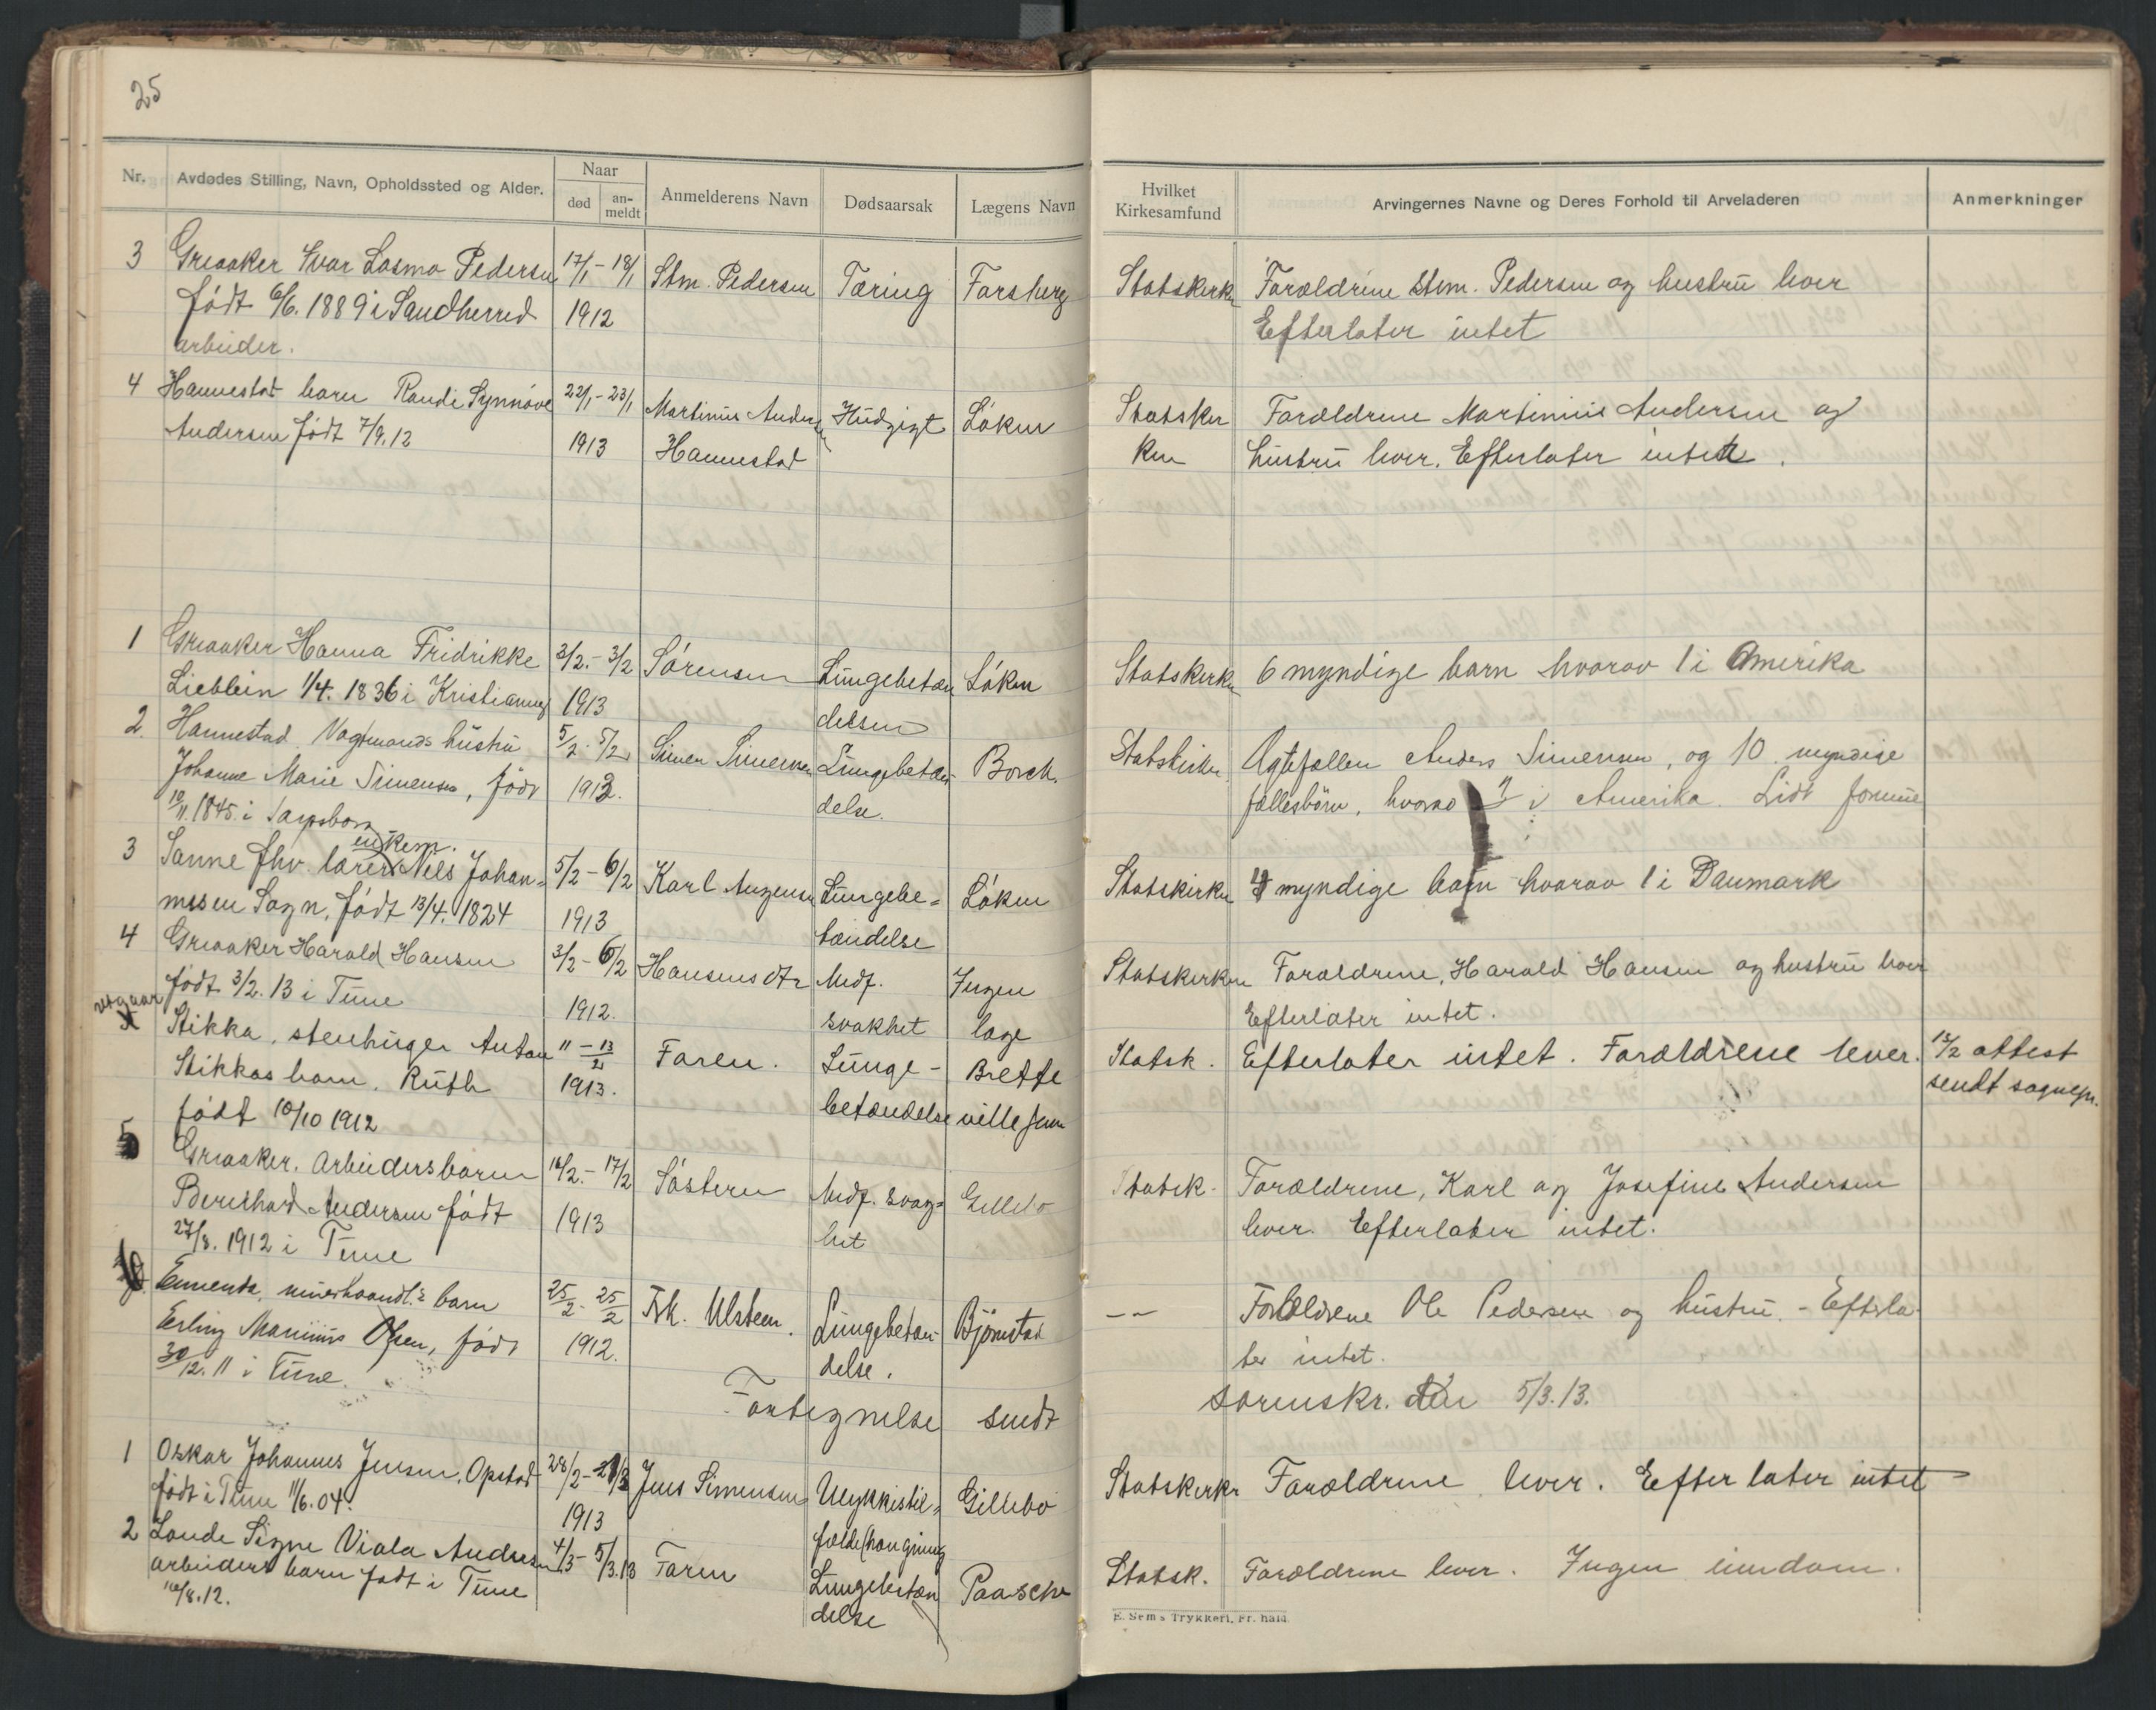 25
Nr. Avdødes Stilling, Navn, Opholdssted og Alder. Naar død an-meldt Anmelderens Navn Dødsaarsak Lægens Navn Hvilket Kirkesamfund Arvingernes Navne og Deres Forhold til Arveladeren Anmerkninger
3 Greaaker Ivar Losmo Pedersen 17/1 - 18/1 Stm. Pedersen Tæring Forsberg Statskirke Forældrene Stm. Pedersen og hustru lever
født 6/6. 1889 i Sandherred 1912 Efterlater intet
arbeider.
4 Hannestad barn Randi Synnöve 22/1 - 23/1 Martinius Andersen Hudgigt Löken Statsker Forældrene Martinius Andersen og
Andersen født 7/9.12 1913 Hannestad ken hustru lever. Efterlater intet.
1 Greaaker Hanna Fridrikke 3/2. - 3/2 Sörensen Lungebetæn Löken Statskirke 6 myndige barn hvorav 1 i Amerika
Lieblein 1/4. 1836 i Kristiania 1913 delsen
2. Hannestad Vagtmands hustru 5/2 - 5/2 Simen Simensen Lungebetæn- Borch. Statskirken Ægtefællen Anders Simensen, og 10 myndige
Johanne Marie Simensen, født 1913. delse. fællesbörn, hvorav 7 i Amerika. Lidt formue
10/11. 1845 i Sarpsborg
enkem.
3 Sanne fhv. lærer Nels Johan= 5/2 - 6/2 Karl Lungebe= Löken Statskirke 4 myndige barn hvorav 1 i Danmark
nesen Sogn, født 13/4. 1824 1913 tændelse
4 Greaaker Harald Hansen 3/2 - 6/2 Hansens dtr Medf. Ingen Statskirken Forældrene, Harald Hansen og hustru lever
født 3/2. 13 i Tune 1912. svakhet læge Efterlater intet.
utgaar
Stikka, stenhugger Anton 11 - 13/2 Faren. Lunge- Brette Statsk. Efterlater intet. Forældrene lever. 13/2 attest
Stikkas barn, Ruth 1913. betændelse ville jun sendt sognepr.
født 10/10 1912
5 Greaaker. Arbeidersbarn 16/2. - 17/2 Söstern Medf. svag= Gillebo Statsk. Forældrene, Karl og Josefine Andersen
Bernhard Andersen født 1913 het lever. Efterlater intet.
27/8. 1912 i Tune
barn 25/2 - 25/2 Frk. Ulsteen. Lungebetæn- Björnstad -- Forældrene Ole Pedersen og hustru. - Efterla-
Erling Marinius Olsen, født 1912. delse. ter intet.
30/12. 11 i Tune.
Fortegnelse sendt sorenskr. den 5/3.13.
1 Oskar Johannes Jensen, Opstad 28/2 - 2/3 Jens Simensen Ulykkestil= Gillebo Statskirke Forældrene lever. Efterlater intet
født i Tune 11/6. 04. 1913 fælde(hængning
2 Lande Signe Viola Andersen 4/3 - 5/3.13 Faren Lungebetæn Paasche Statsk. Forældrene lever. Ingen eiendom.
arbeiders barn født i Tune delse
16/8.12.
E. Sems Trykkeri, Fr.hald.